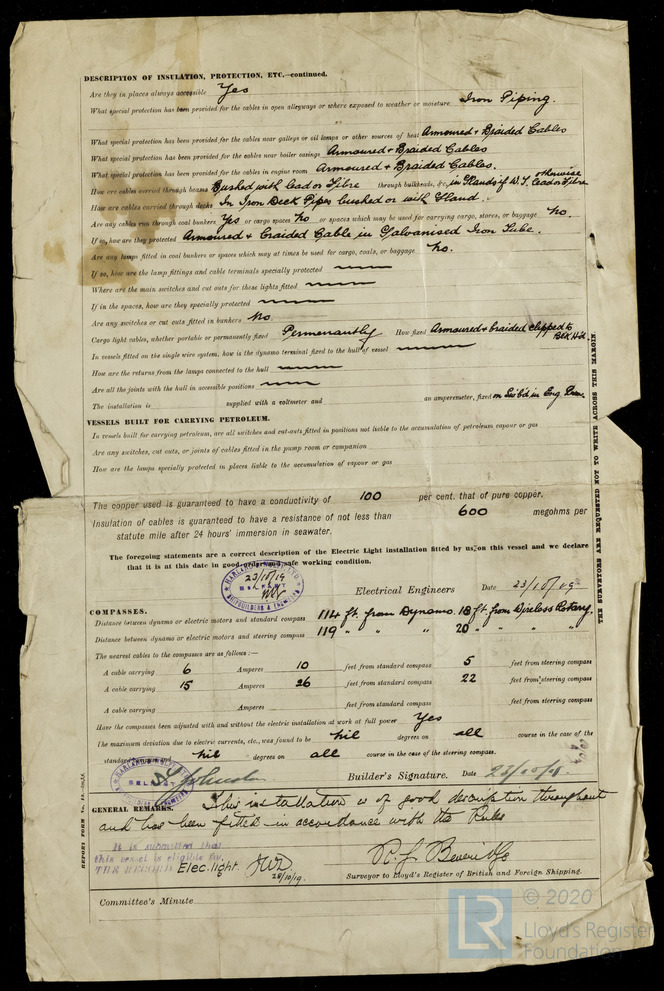 DESCRIPTION OF INSULATION, PROTECTION, ETC.—continued.
Are they in places always accessible Yes
What special protection has been provided for the cables in open alleyways or where exposed to weather or moisture Iron Piping.
What special protection has been provided for the cables near galleys or oil lamps or other sources of heat Armoured + Braided Cables
What special protection has been provided for the cables near boiler casings Armoured + Braided Cables
What special protection has been provided for the cables in engine room Armoured + Braided Cables.
How are cables carried through beams Bushed with lead or Fibre through bulkheads, &c. in Glands if W.T. otherwise lead or Fibre
How are cables carried through decks In Iron Deck Pipes bushed or with Gland.
Are any cables run through coal bunkers Yes or cargo spaces No or spaces which may be used for carrying cargo, stores, or baggage No.
If so, how are they protected Armoured & Braided Cable in Galvanised Iron Tube.
Are any lamps fitted in coal bunkers or spaces which may at times be used for cargo, coals, or baggage No.
If so, how are the lamp fittings and cable terminals specially protected
Where are the main switches and cut outs for these lights fitted
If in the spaces, how are they specially protected
Are any switches or cut outs fitted in bunkers No
Cargo light cables, whether portable or permanently fixed Permenantly How fixed Armoured & braided clipped to Blk H'd.
In vessels fitted on the single wire system, how is the dynamo terminal fixed to the hull of vessel
How are the returns from the lamps connected to the hull
Are all the joints with the hull in accessible positions
The installation is supplied with a voltmeter and an amperemeter, fixed on Swb'd in Eng Room.
VESSELS BUILT FOR CARRYING PETROLEUM.
In vessels built for carrying petroleum, are all switches and cut-outs fitted in positions not liable to the accumulation of petroleum vapour or gas
Are any switches, cut outs, or joints of cables fitted in the pump room or companion
How are the lamps specially protected in places liable to the accumulation of vapour or gas
The copper used is guaranteed to have a conductivity of 100 per cent. that of pure copper.
Insulation of cables is guaranteed to have a resistance of not less than 600 megohms per
statute mile after 24 hours' immersion in seawater.
The foregoing statements are a correct description of the Electric Light installation fitted by us, on this vessel and we declare
that it is at this date in good order and safe working condition.
23/10/19
BELFAST
Electrical Engineers Date 23/10/19
COMPASSES.
Distance between dynamo or electric motors and standard compass 114 ft. from Dynamo. 18 ft. from Wireless Rotary.
Distance between dynamo or electric motors and steering compass 119 " " " 20 " " "
The nearest cables to the compasses are as follows:—
A cable carrying 6 Amperes 10 feet from standard compass 5 feet from steering compass
A cable carrying 15 Amperes 26 feet from standard compass 22 feet from steering compass
A cable carrying Amperes feet from standard compass feet from steering compass
Have the compasses been adjusted with and without the electric installation at work at full power Yes
The maximum deviation due to electric currents, etc., was found to be Nil degrees on all course in the case of the
standard Nil degrees on all course in the case of the steering compass.
Builder's Signature. Date 23/10/19.
GENERAL REMARKS. This installation is of good description throughout
and has been fitted in accordance with the Rules
It is submitted that
this vessel is eligible for
THE RECORD Elec. light.
28/10/19.
R. J. Beveridge
Surveyor to Lloyd's Register of British and Foreign Shipping.
Committee's Minute
THE SURVEYORS ARE REQUESTED NOT TO WRITE ACROSS THIS MARGIN
LR © 2020
Lloyd's Register
Foundation